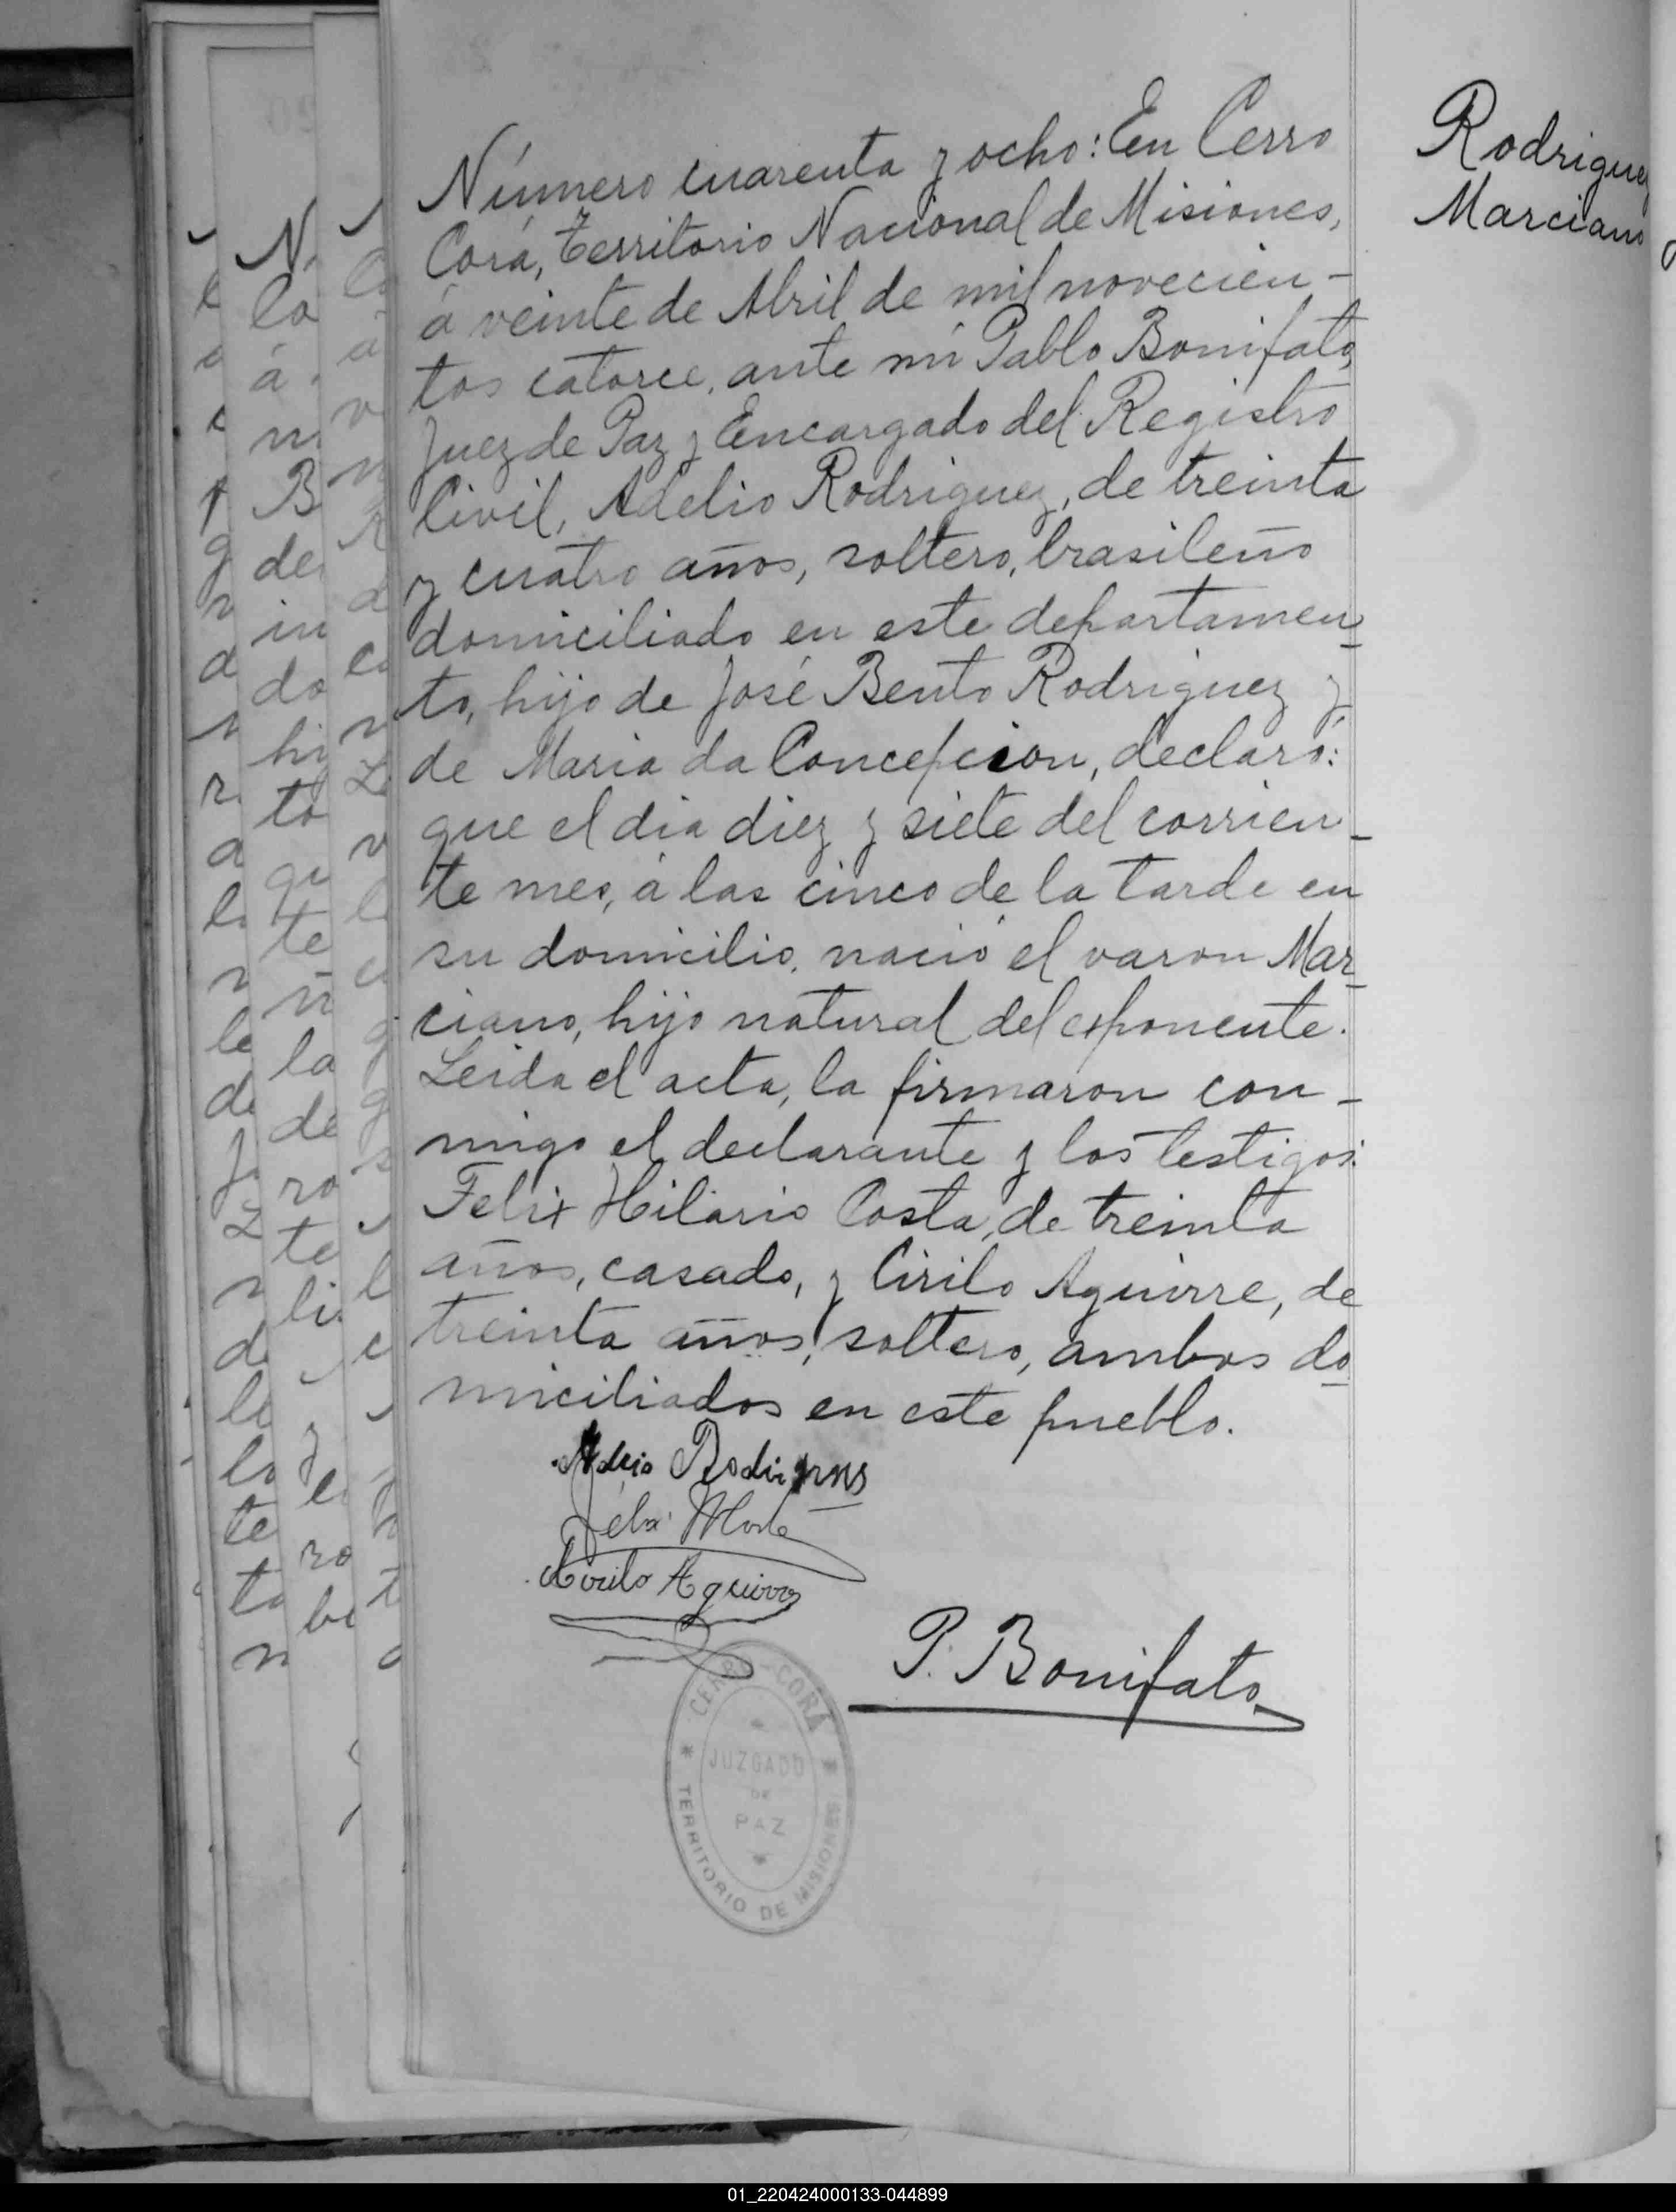 Número cuarenta y ocho: En Cerro
Corá, Territorio Nacional de Misiones,
á veinte de Abril de mil novecien-
tos catorce, ante mi Pablo Bonifato,
Juez de Paz y Encargado del Registro
Civil, Adelio Rodriguez, de treinta
y cuatro años, soltero, brasileño
domiciliado en este departamen-
to, hijo de José Bento Rodriguez y
de Maria da Concepcion, declaró:
que el dia diez y siete del corrien-
te mes, á las cinco de la tarde en
su domicilio, nació el varon Mar-
ciano, hijo natural del esponente.
Leida el acta, la firmaron con-
migo el declarante y los testigos:
Felix Hilario Costa, de treinta
años, casado, y Cirilo Aguirre, de
treinta años, soltero, ambos do-
miciliados en este pueblo.
Cirilo Aguirre
P. Bonifato
CERRO CORÁ
JUZGADO
DE
PAZ
TERRITORIO DE MISIONES
Rodriguez
Marciano
01_220424000133-044899